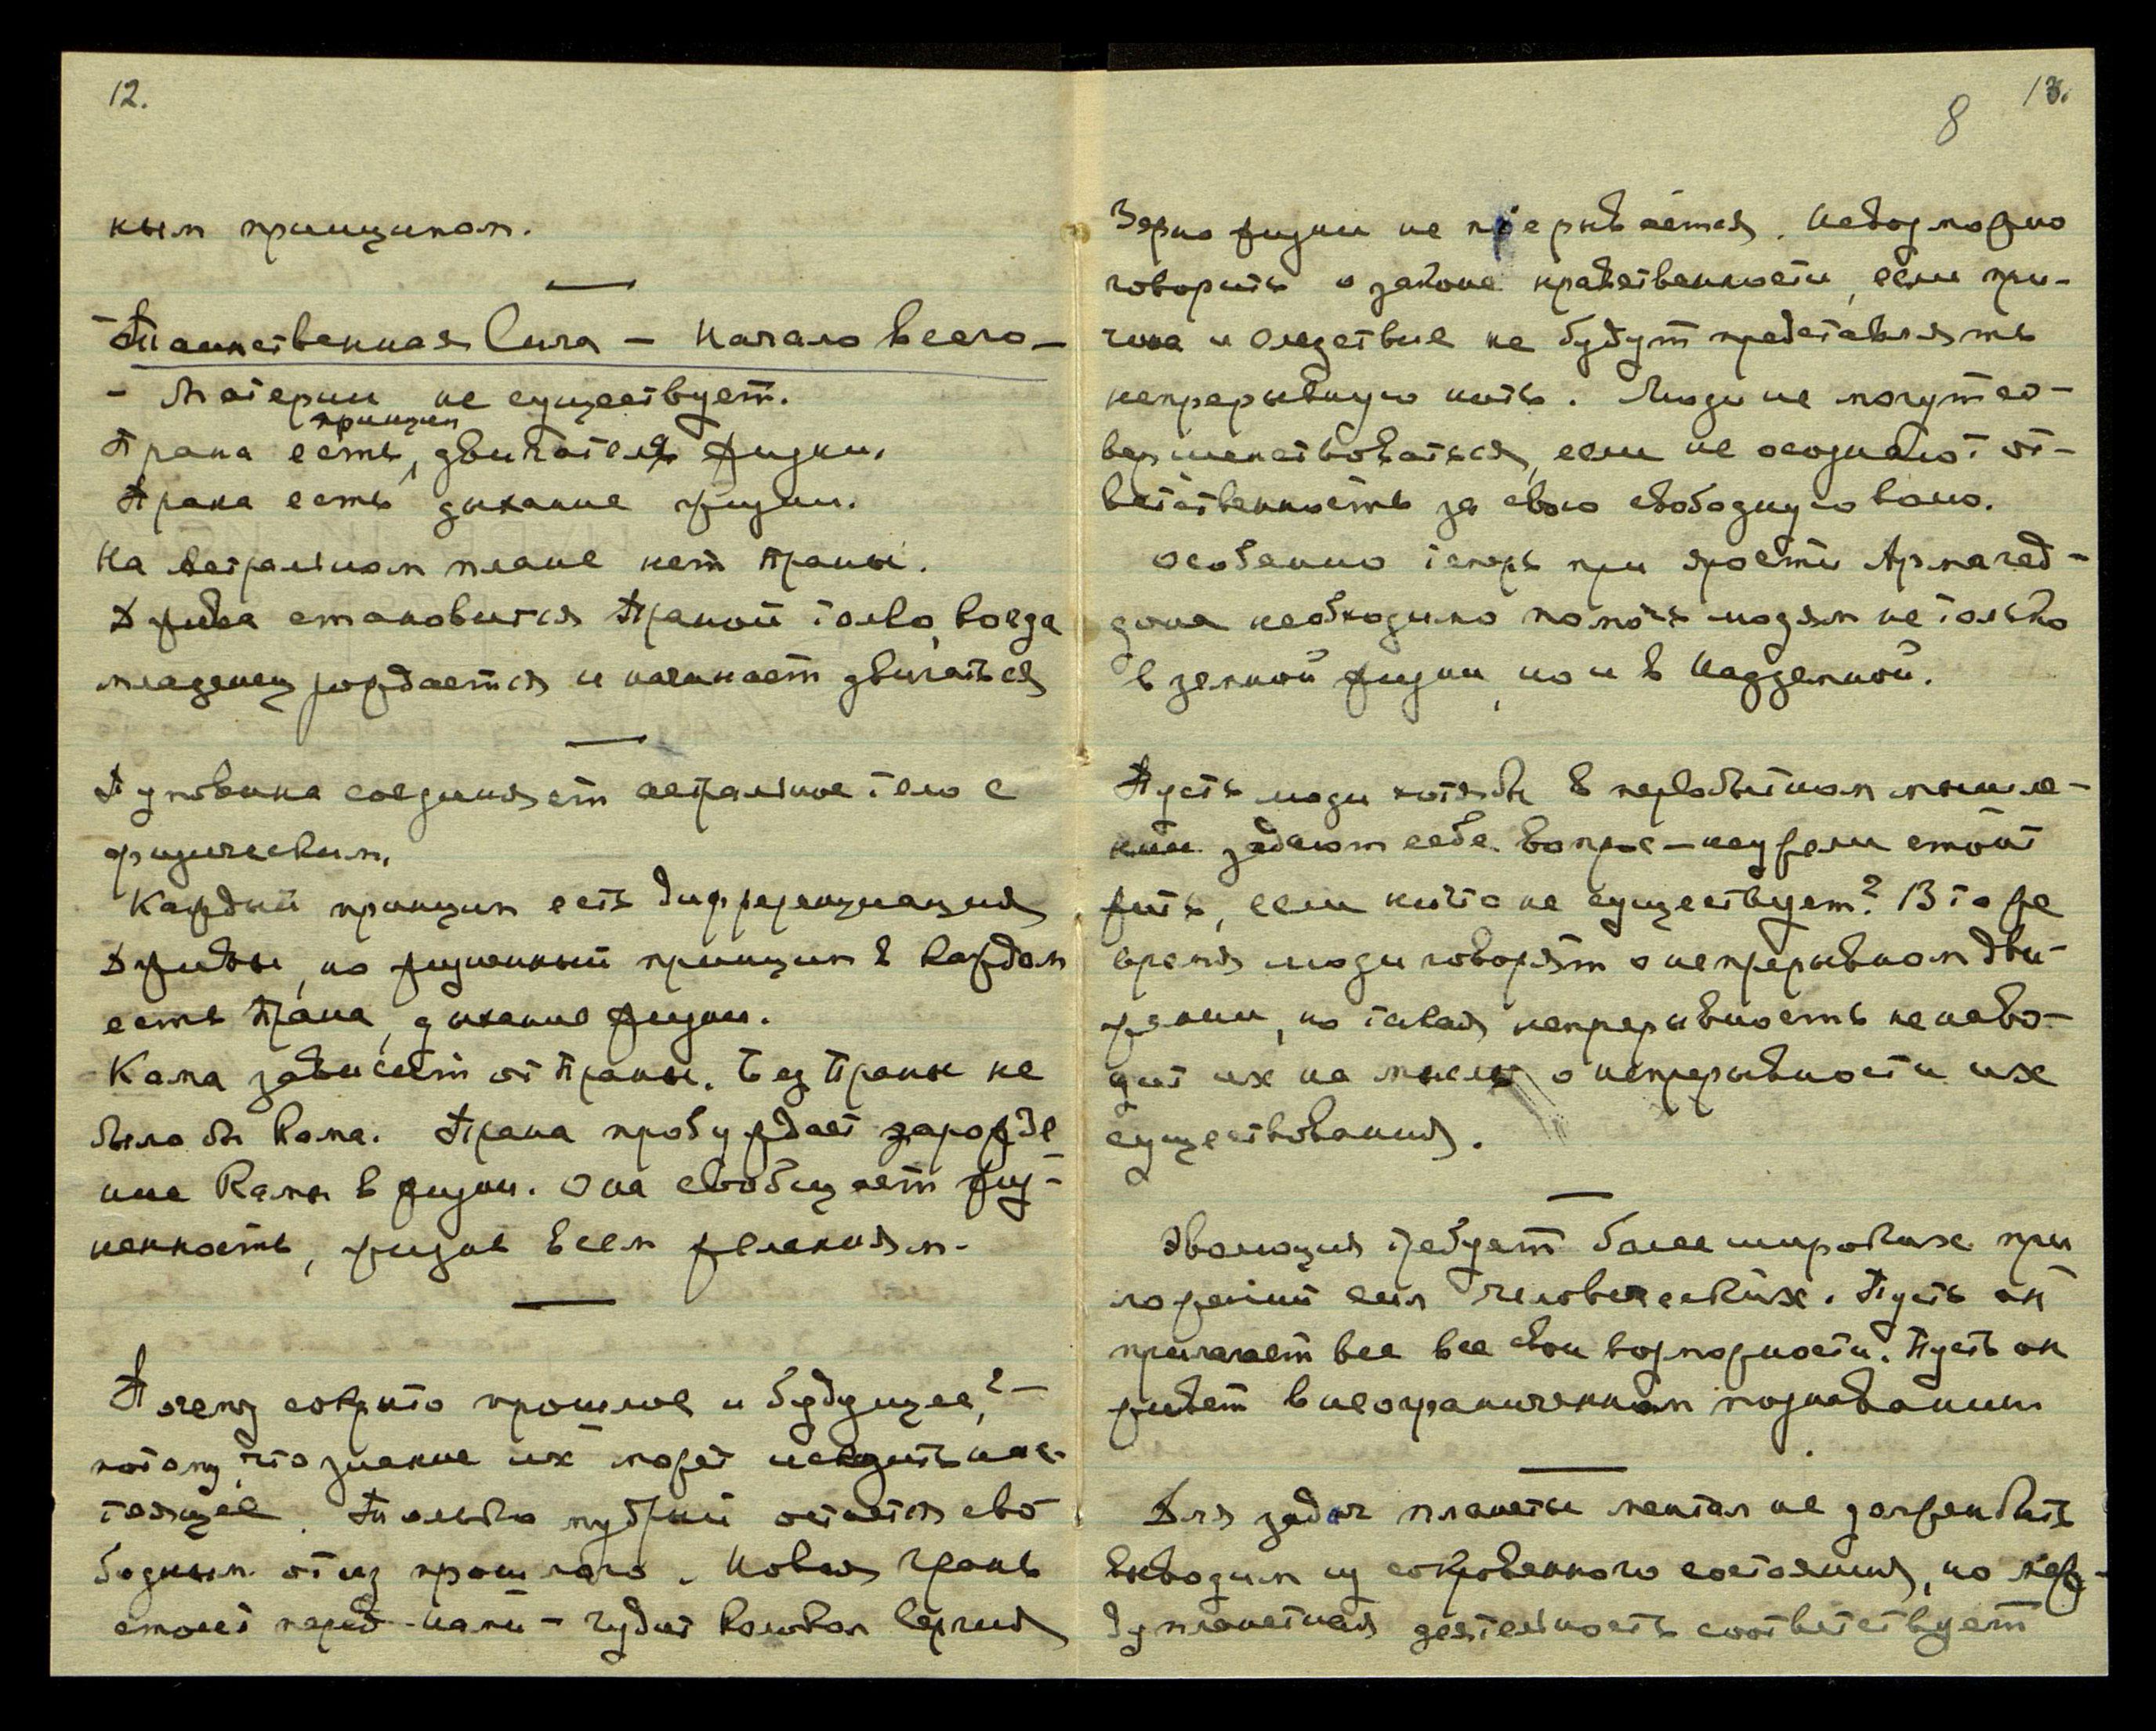 12.
ным принципом.
Таинственная Сила — Начало всего —
- Материи не существует.
принцип
Прана есть, двигателя жизни.
Прана есть дыхание жизни.
На астральном плане нет праны.
Джива становится Праной только, когда
младенец рождается и начинает двигаться
Пуповина соединяет астральное тело с
физическим.
Каждый принцип есть дифференциация
Дживы, но жизненный принцип в каждом
есть Прана, дыхание жизни.
Кама зависит от Праны. Без Праны не
было бы Кама. Прана пробуждает зарожде
ние Камы в жизни. Она сообщает жиз-
ненность, жизнь всем желаниям.
Почему сокрыто прошлое и будущее? —
потому что знание их может нас-
тоящее. Только мудрый остается сво
бодным от уз прошлого. Новая грань
стоит перед нами — гудит колокол
13.
8
Зерно жизни не прерывается. Невозможно
говорить о законе нравственности, если при-
чина и следствие не будут представлять
непрерывную нить. Люди не могут со-
вершенствоваться, если не осознают от-
ветственность за свою свободную волю.
Особенно теперь при ярости Армагед-
дона необходимо помочь людям не только
в земной жизни, но и в Надземной.
Пусть люди хотя бы в первобытном мышле-
нии задают себе вопрос — неужели стоит
жить, если ничто не существует? В то же
время люди говорят о непрерывном дви-
жении, но такая непрерывность не наво-
дит их на мысль о непрерывности их
существования.
Эволюция требует более широких при
ложений сил человеческих. Пусть он
прилагает все все свои возможности. Пусть он
живет в неограниченном познавании
Для задач планеты ментал не должен быть
выводим из сокровенного состояния, но меж-
дупланетная деятельность соответствует